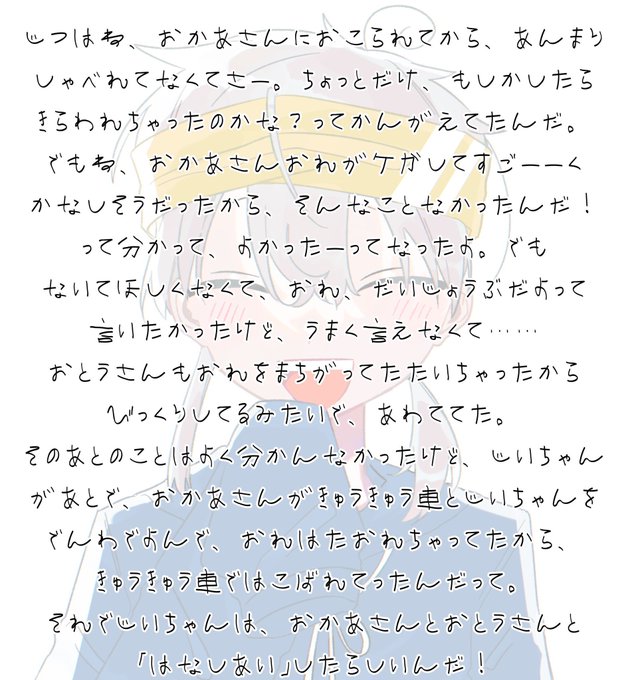 じつはね、おかあさんにおこられてから、あんまり
しゃべれてなくてさー。ちょっとだけ、もしかしたら
きらわれちゃったのかな？ってかんがえてたんだ。
でもね、おかあさんおれがケガしてすごーーく
かなしそうだったから、そんなことなかったんだ！
って分かって、よかったーってなったよ。でも
ないてほしくなくて、おれ、だいじょうぶだよって
言いたかったけど、うまく言えなくて……
おとうさんもおれをまちがってたたいちゃったから
びっくりしてるみたいで、あわててた。
そのあとのことはよく分かんなかったけど、じいちゃん
があとで、おかあさんがきゅうきゅう車とじいちゃんを
でんわでよんで、おれはたおれちゃってたから、
きゅうきゅう車ではこばれてったんだって。
それでじいちゃんは、おかあさんとおとうさんと
「はなしあい」したらしいんだ！